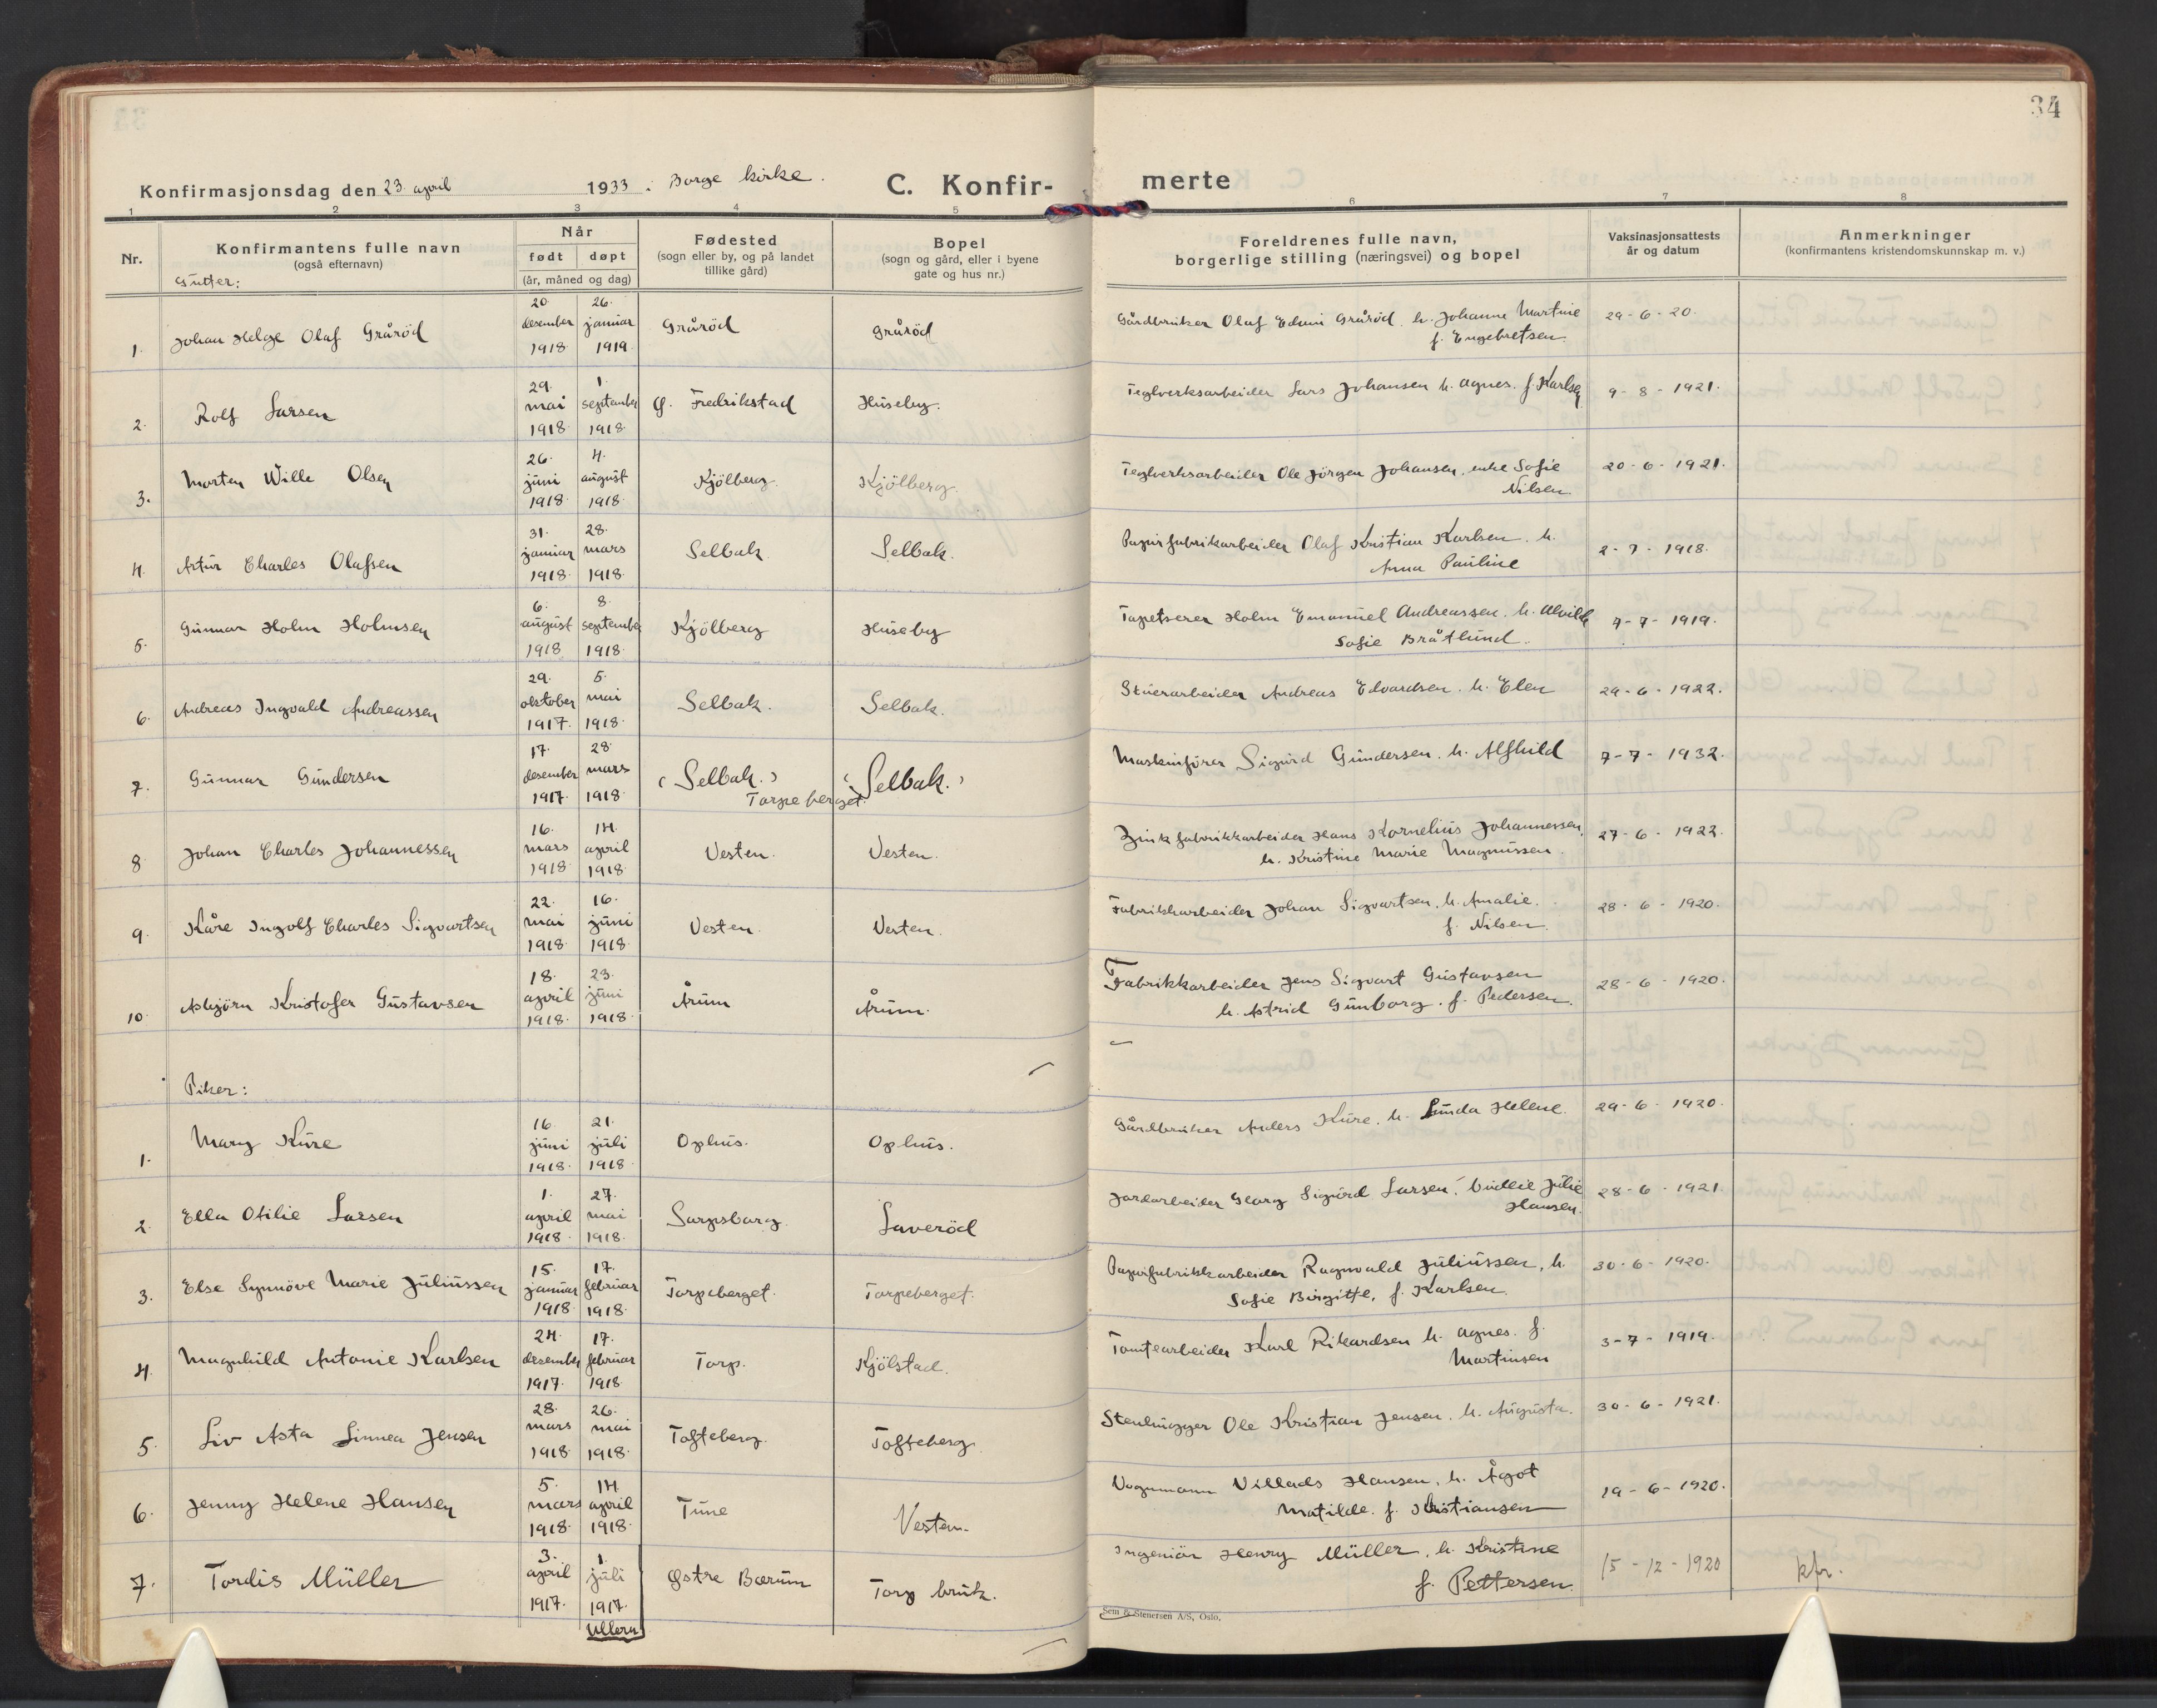 34
Konfirmasjonsdag den 23. april 1933 i Borge kirke.
C. Konfir-
merte
1 2 3 4 5 6 7 8
Nr.
Konfirmantens fulle navn
(også efternavn)
Når
født døpt
(år, måned og dag)
Fødested
(sogn eller by, og på landet
tillike gård)
Bopel
(sogn og gård, eller i byene
gate og hus nr.)
Foreldrenes fulle navn,
borgerlige stilling (næringsvei) og bopel
Vaksinasjonsattests
år og datum
Anmerkninger
(konfirmantens kristendomskunnskap m. v.)
Gutter:
1. Johan Helge Olaf Gråröd 20. desember 1918 26. januar 1919 Gråröd Gråröd Gårdbruker Olaf Edvin Gråröd. h. Johanne Martine
f. Engebretsen. 29-6-20.
2. Rolf Larsen 29. mai 1918 1. september 1918 Ø. Fredrikstad Huseby. Teglverksarbeider Lars Johansen h. Agnes. f. Karlsen 9-8-1921.
3. Morten Wille Olsen 26. juni 1918 4. august 1918 Kjölberg. Kjölberg. Teglverksarbeider Ole Jörgen Johansen, enke Sofie
Nilsen 20-6-1921.
4. Artur Charles Olafsen 31. januar 1918 28. mars 1918 Selbak Selbak. Papirfabrikarbeider Olaf Kristian Karlsen. h.
Anna Pauline 2-7-1918.
5. Gunnar Holm Holmsen 6. august 1918 8. september 1918 Kjölberg Huseby Tapetserer Holm Emanuel Andreassen. h. Alvilde
Sofie Bråtlund. 7-7-1919.
6. Andreas Ingvald Andreassen 29. oktober 1917 5. mai 1918 Selbak. Selbak. Stuerarbeider Andreas Edvardsen. h. Elen 29-6-1922.
7. Gunnar Gundersen 17. desember 1917 28. mars 1918 (Selbak.) Torpeberget. (Selbak.) Maskinfører Sigurd Gundersen. h. Alfhild 7-7-1932.
8. Johan Charles Johannessen 16. mars 1918 14. april 1918 Vesten. Vesten. Zinkfabrikkarbeider Hans Kornelius Johannessen,
h. Kristine Marie Magnussen. 27-6-1922.
9. Kåre Ingolf Charles Sigvartsen 22. mai 1918 16. juni 1918 Vesten. Vesten. Fabrikkarbeider Johan Sigvartsen. h. Amalie.
f. Nilsen. 28-6-1920.
10. Asbjörn Kristofer Gustavsen 18. april 1918 23. juni 1918 Årum Årum. Fabrikkarbeider Jens Sigvart Gustavsen
h. Astrid Gunborg. f. Pedersen. 28-6-1920.
Piker:
1. Mary Kure 16. juni 1918 21. juli 1918 Ophus. Ophus. Gårdbruker Anders Kure. h. Lunda Helene. 29-6-1920.
2. Ella Otilie Larsen 1. april 1918 27. mai 1918 Sarpsborg. Laveröd Jordarbeider Georg Sigurd Larsen. Julie
Hansen. 28-6-1921
3. Else Synnöve Marie Juliussen 15. januar 1918 17. februar 1918 Torpeberget. Torpeberget. Papirfabrikkarbeider Ragnvald Juliussen, h.
Sofie Birgitte, f. Karlsen. 30-6-1920.
4. Magnhild Antonie Karlsen 24. desember 1917 17. februar 1918 Torp. Kjölstad. Tomtearbeider Karl Rikardsen h. Agnes. f.
Martinsen 3-7-1919.
5. Liv Asta Linnea Jensen 28. mars 1918 26. mai 1918 Tofteberg. Tofteberg. Stenhugger Ole Kristian Jensen. h. Augusta. 30-6-1921.
6. Jenny Helene Hansen 5. mars 1918 14. april 1918 Tune Vesten. Vognmann Villads Hansen, h. Ågot
Matilde. f. Kristiansen 19-6-1920.
7. Tordis Müller 3. april 1917. 1. juli 1917. Ullern Østre Bærum Torp bruk. Ingeniör Henry Müller, h. Kristine
f. Pettersen. 15-12-1920 kfr.
Sem & Stenersen A/S, Oslo.